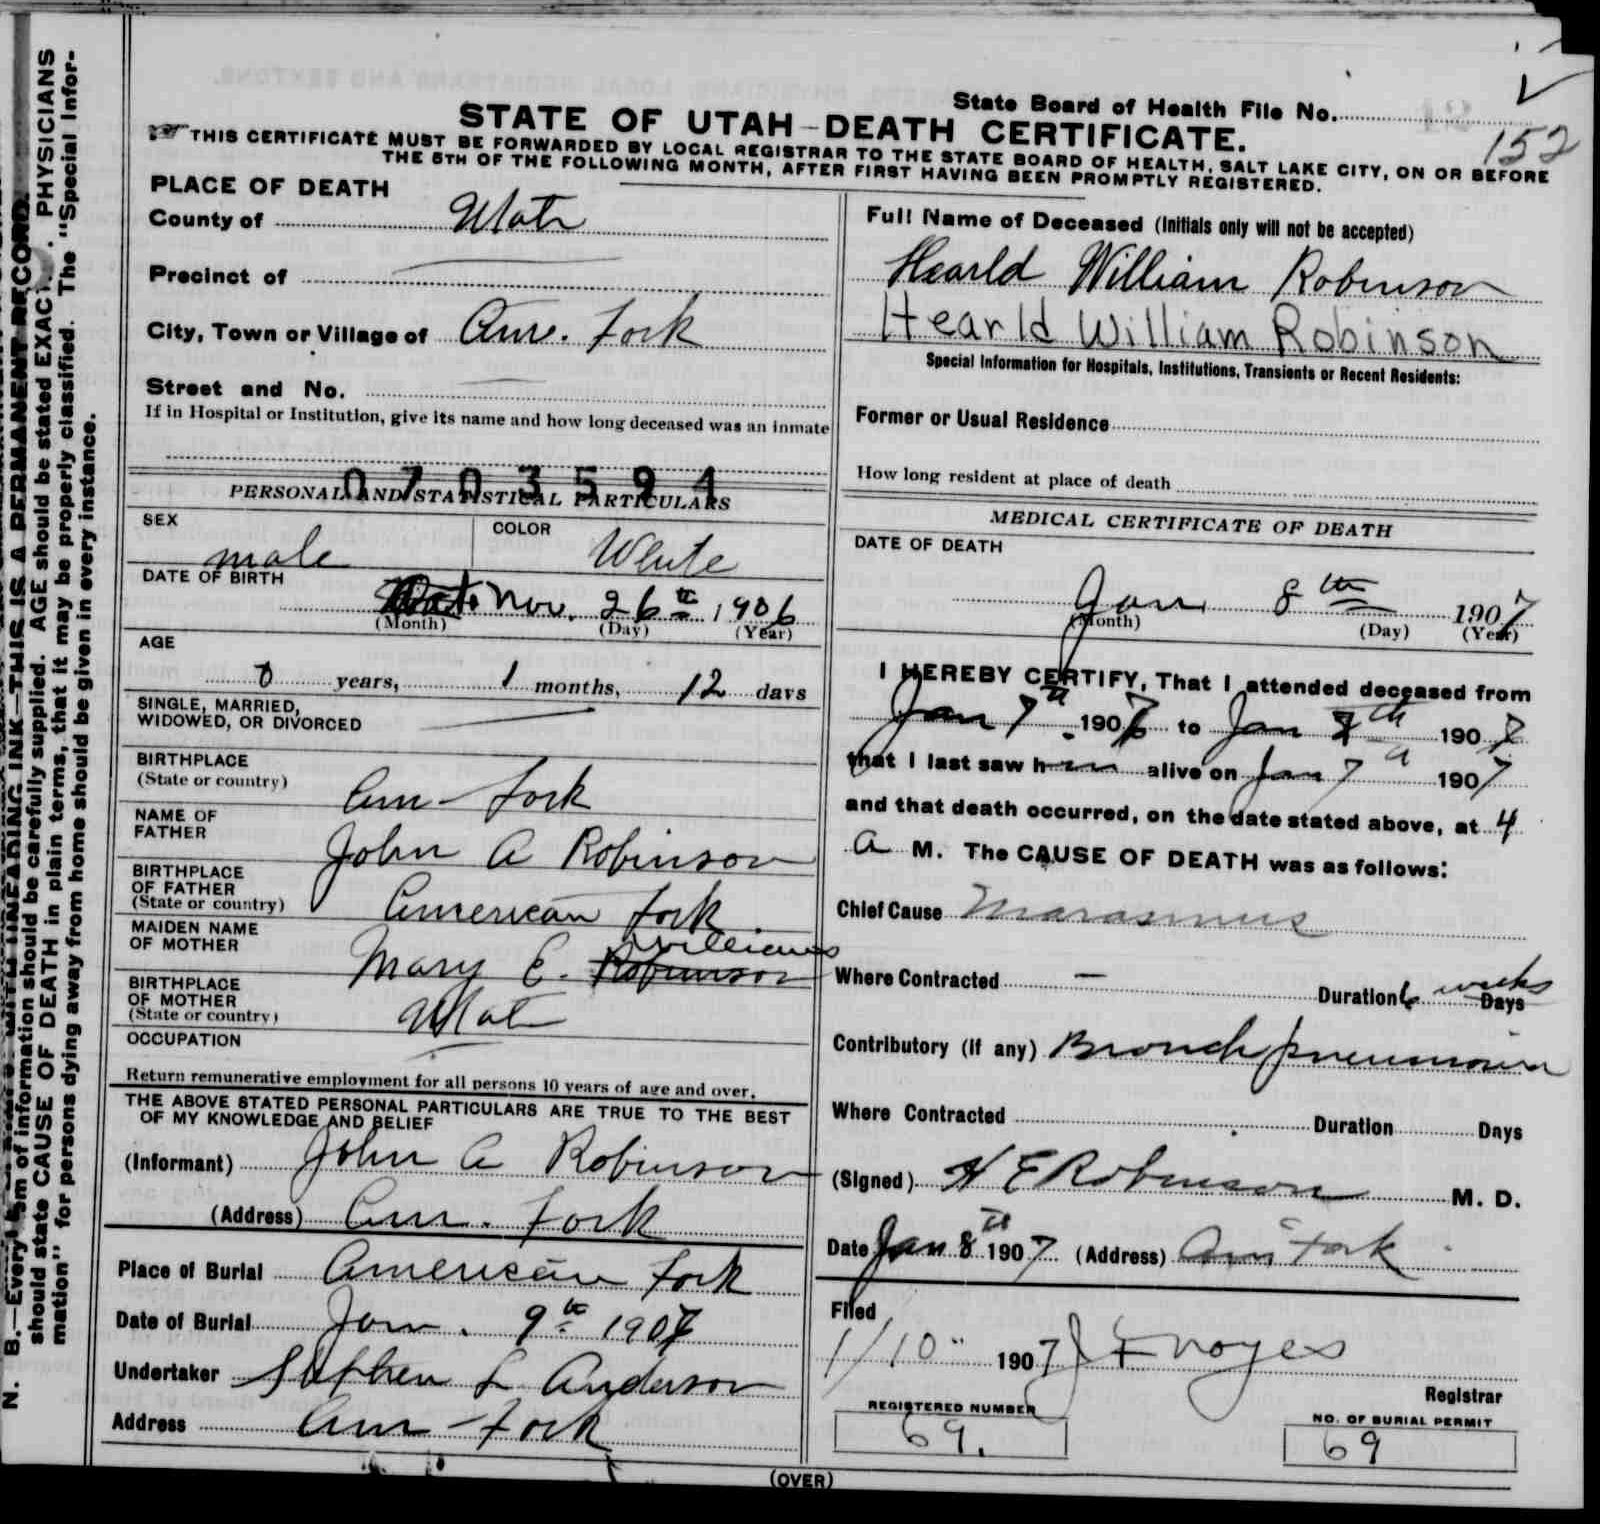 State Board of Health File No.
152
STATE OF UTAH-DEATH CERTIFICATE.
THIS CERTIFICATE MUST BE FORWARDED BY LOCAL REGISTRAR TO THE STATE BOARD OF HEALTH, SALT LAKE CITY, ON OR BEFORE
THE 5TH OF THE FOLLOWING MONTH, AFTER FIRST HAVING BEEN PROMPTLY REGISTERED.
PLACE OF DEATH
County of Utah
Precinct of
City, Town or Village of Am. Fork
Street and No.
If in Hospital or Institution, give its name and how long deceased was an inmate
0703594
PERSONAL AND STATISTICAL PARTICULARS
SEX male COLOR White
DATE OF BIRTH
Nov. 26th 1906
(Month) (Day) (Year)
AGE
0 years, 1 months, 12 days
SINGLE, MARRIED,
WIDOWED, OR DIVORCED
BIRTHPLACE
(State or country) Am Fork
NAME OF
FATHER John A Robinson
BIRTHPLACE
OF FATHER
(State or country) American Fork
MAIDEN NAME
OF MOTHER Mary E. Robinson Williams
BIRTHPLACE
OF MOTHER
(State or country) Utah
OCCUPATION
Return remunerative employment for all persons 10 years of age and over.
THE ABOVE STATED PERSONAL PARTICULARS ARE TRUE TO THE BEST
OF MY KNOWLEDGE AND BELIEF
(Informant) John A Robinson
(Address) Am. Fork
Place of Burial American Fork
Date of Burial Jan. 9th 1907
Undertaker Stephen L Anderson
Address Am Fork
Full Name of Deceased (Initials only will not be accepted)
Hearld William Robinson
Hearld William Robinson
Special Information for Hospitals, Institutions, Transients or Recent Residents:
Former or Usual Residence
How long resident at place of death
MEDICAL CERTIFICATE OF DEATH
DATE OF DEATH
Jan 8th 1907
(Month) (Day) (Year)
I HEREBY CERTIFY, That I attended deceased from
Jan 7th 1907 to Jan 8th 1907
that I last saw him alive on Jan 7th 1907
and that death occurred, on the date stated above, at 4
A M. The CAUSE OF DEATH was as follows:
Chief Cause Marasmus
Where Contracted - Duration 6 weeks Days
Contributory (if any) Bronch pneumonia
Where Contracted Duration Days
(Signed) H E Robinson M. D.
Date Jan 8th 1907 (Address) Am Fork
Filed
1/10 1907 J F Noyes
Registrar
REGISTERED NUMBER
69.
NO. OF BURIAL PERMIT
69
(OVER)
PHYSICIANS
THIS IS A PERMANENT RECORD.
N. B.—Every item of information should be carefully supplied. AGE should be stated EXACTLY.
should state CAUSE OF DEATH in plain terms, that it may be properly classified. The "Special Infor-
mation" for persons dying away from home should be given in every instance.